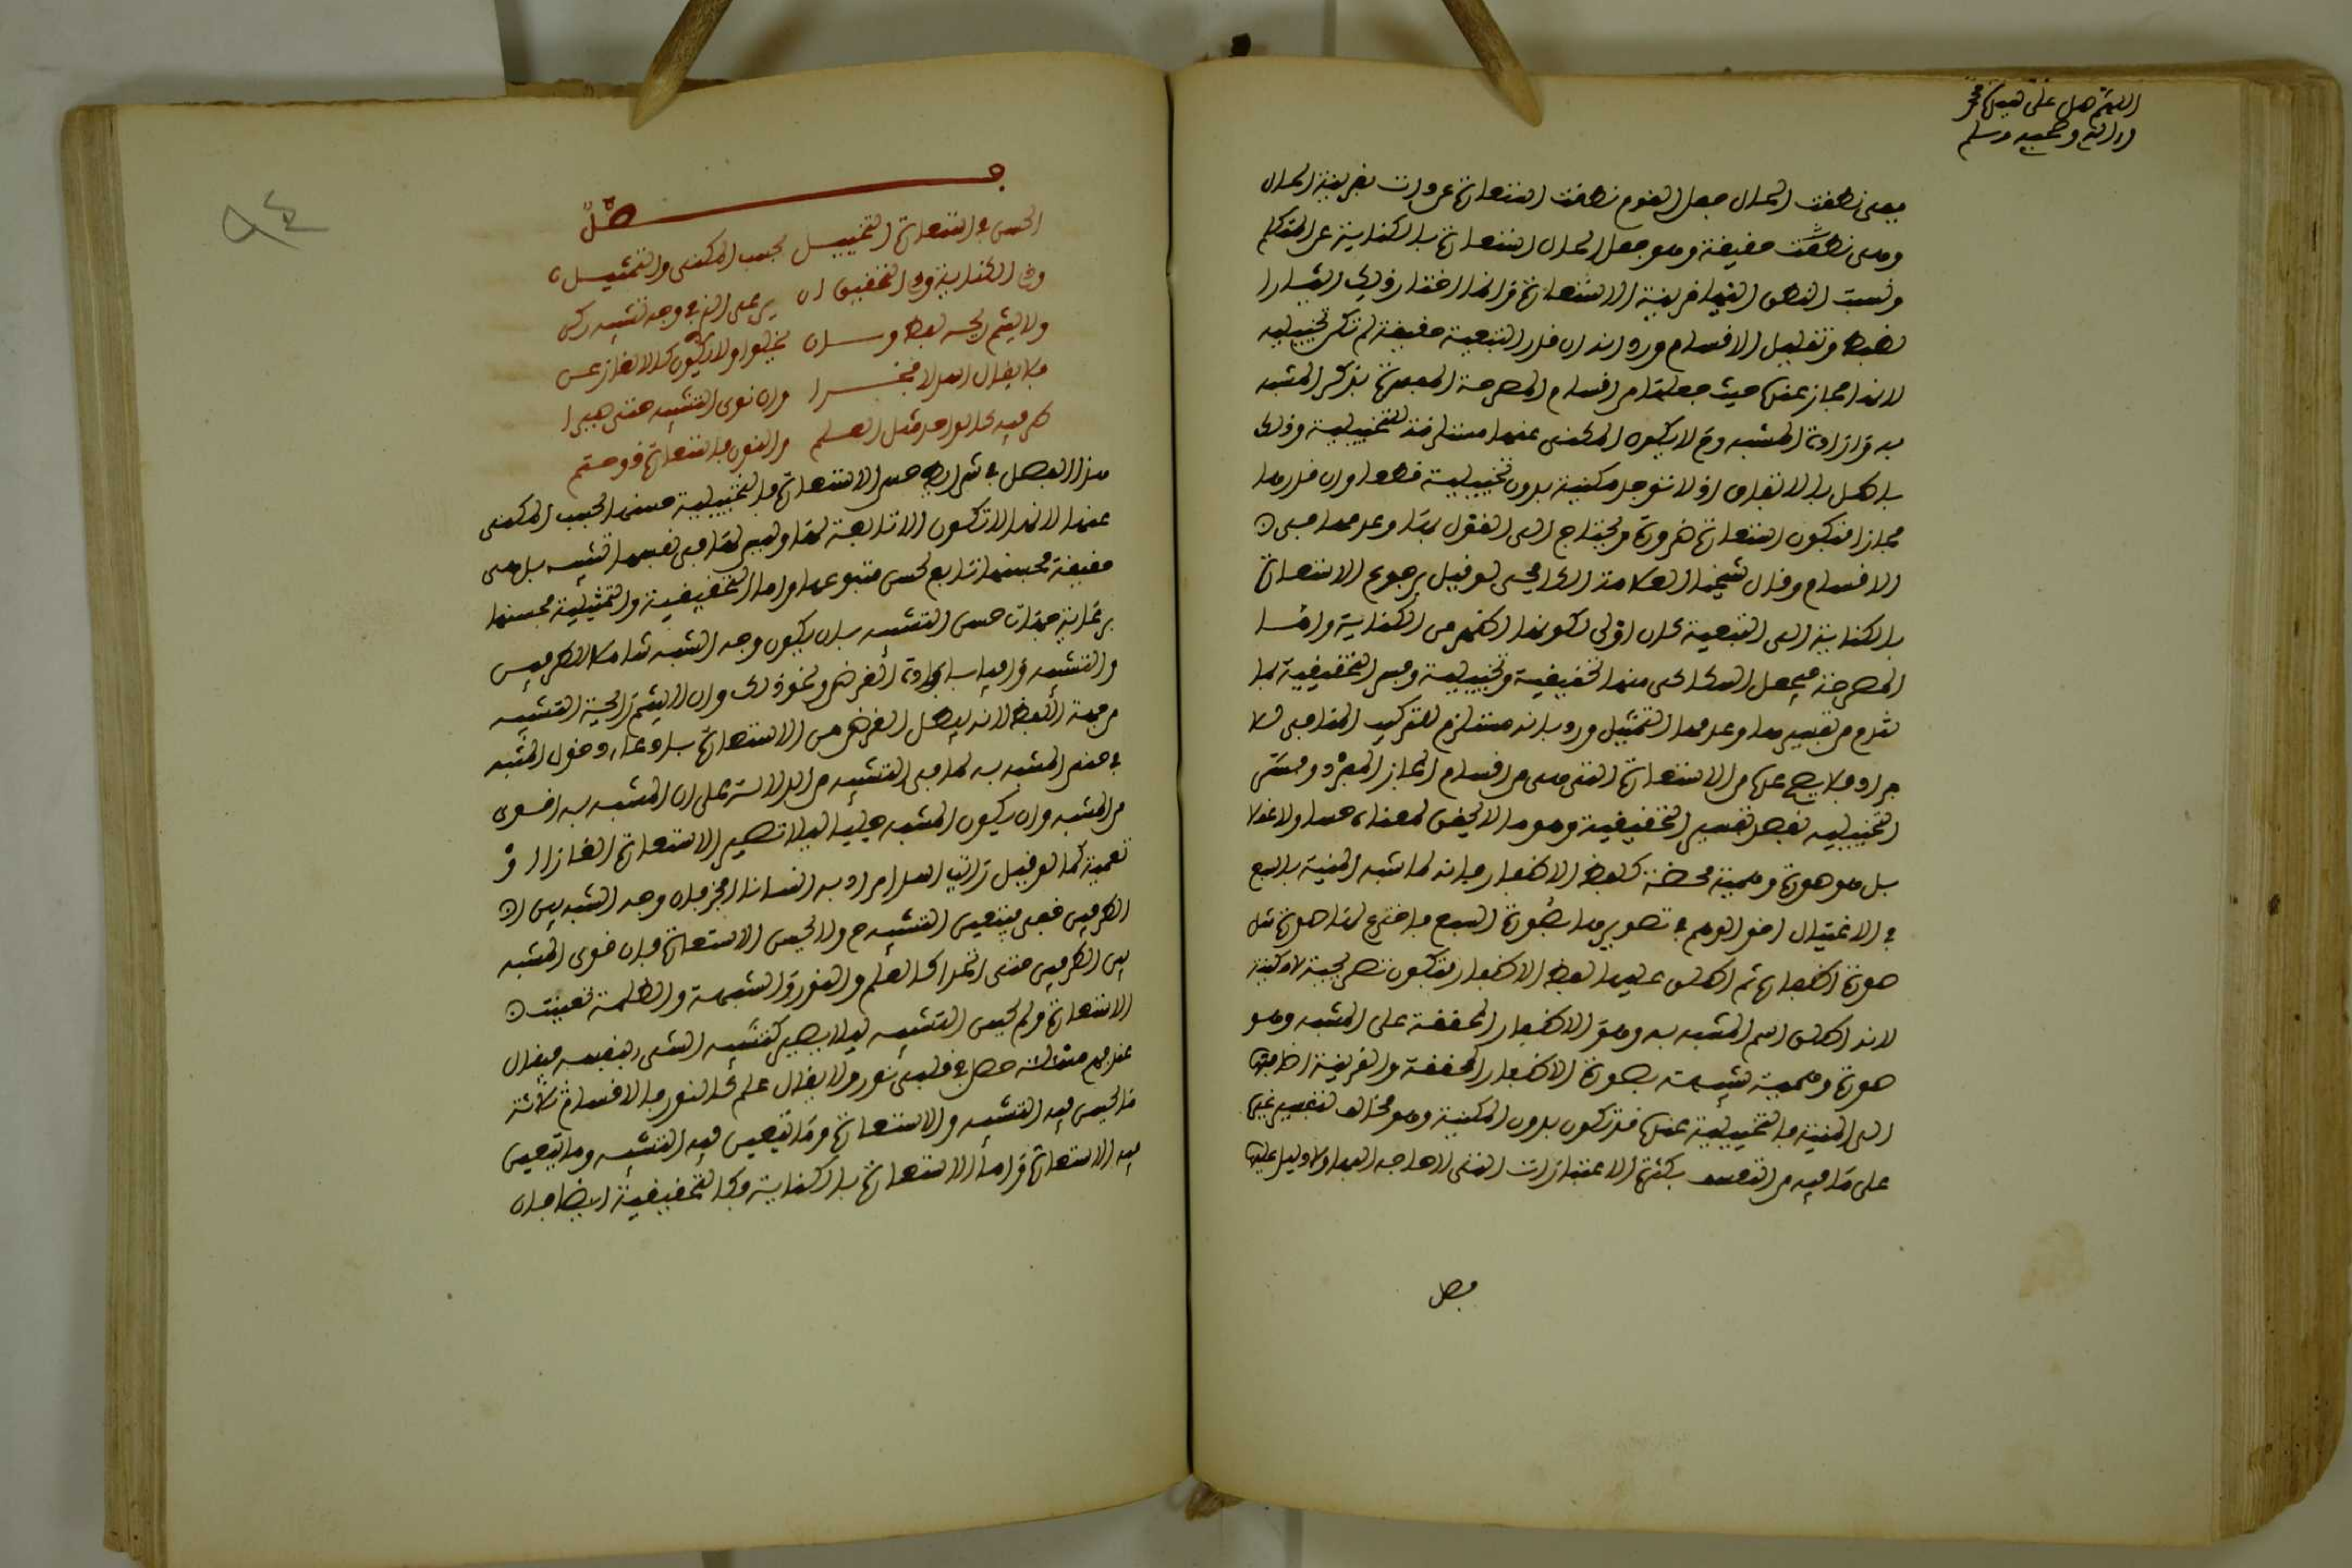 اللهم صل على سيدنا محمد
واله وصحبه وسلم
ففي نطقت الحال جعل القوم نطقت استعارة عن دلت بقرينة الحال
وهي نطقت حقيقة وهو جعل الحال استعارة بالكناية عن المتكلم
ونسبت النطق اليها قرينة الاستعارة وانما اختار ذلك ايثارا
لضبط وتقليل الاقسام ورد بانه ان قدر التبعية حقيقة لم تكن تخييلية
لانها مجاز عنده حيث جعلها من اقسام المصرحة المعبرة بذكر المشبه
به وارادة المشبه وح لا يكون المكنى عنها مستلزمة للتخييلية وذلك
باطل بالاتفاق اذ لا توجد مكنية بدون تخييلية قطعا وان قدرها
مجازا فتكون استعارة ضرورة ويحتاج الى القول بها وعدها من
الاقسام وقال شيخنا العلامة الكافيجي لو قيل برجوع الاستعارة
بالكناية الى التبعية كان اولى لكونها اظهر من الكناية واما
المصرحة فجعل السكاكي منها تحقيقية وتخييلية وفسر التحقيقية بما
تقدم من تفسيرها وعد منها التمثيل ورد بانه مستلزم للتركيب المنافي للا
فراد فلا يصح عده من الاستعارة التي هي من اقسام المجاز المفرد وفسر
التخييلية بعكس تفسير التحقيقية وهو ما لا تحقق لمعناه حسا ولا عقلا
بل هو صورة وهمية محضة كلفظ الاظفار فانه لما شبه المنية بالسبع
في الاغتيال اخذ الوهم في تصويرها بصورة السبع فاخترع لها صورة مثل
صورة اظفاره ثم اطلق عليها لفظ الاظفار فتكون تصريحية لا مكنية
لانه اطلق اسم المشبه به وهو الاظفار المحققة على المشبه وهو
صورة وهمية شبيهة بصورة الاظفار المحققة والقرينة اضافتها
الى المنية فالتخييلية عنده قد تكون بدون المكنية وهو مخالف لتفسير غيره
على ما فيه من التعسف بكثرة الاعتبارات التي لا حاجة اليها ولا دليل عليها
فصل
٩٤
فصل
الحسن في استعارة التخييل بحسب المكنى والتمثيل
وفي الكناية وفي التحقيق ان يرعى الذي في وجه تشبيه زكن
ولا يشم ريحه لفظا وسان تجليا ولا يكون كالالغاز عن
فلا يقال اسد لابخرا وان نوى التشبيه حتى صيرا
طرفيه كالواحد مثل العلم والنور فاستعارة ذو حتم
هذا الفصل في شرائط حسن الاستعارة فالتخييلية حسنها بحسب المكنى
عنها لانها لا تكون الا تابعة لها وليس لها في نفسها تشبيه بل هي
حقيقة فحسنها تابع لحسن متبوعها واما التحقيقية والتمثيلية فحسنها
برعاية جهات حسن التشبيه بان يكون وجه الشبه شاملا للطرفين
والتشبيه وافيا بافادة الغرض ونحو ذلك وان لا يشم رائحة التشبيه
من جهة اللفظ لانه يبطل الغرض من الاستعارة بادعاء دخول المشبه
في جنس المشبه به لما في التشبيه من الدلالة على ان المشبه به اقوى
من المشبه وان يكون الشبه جليا ليلا تصير الاستعارة الغازا او
تعمية كما لو قيل رايت اسدا مراد به انسانا ابخر فان وجه الشبه بين
الطرفين خفي فيتعين التشبيه ح ولا تحسن الاستعارة فان قوى الشبه
بين الطرفين حتى اتحدا كالعلم والنور والشبهة والظلمة تعينت
الاستعارة ولم يحسن التشبيه ليلا يصير كتشبيه الشيء بنفسه فيقال
عند فهم مسئلة حصل في قلبي نور ولا يقال علم كالنور فالاقسام ثلاثة
ما يحسن فيه التشبيه والاستعارة وما يتعين فيه التشبيه وما يتعين
فيه الاستعارة واما الاستعارة بالكناية فكالتحقيقية ايضا فان